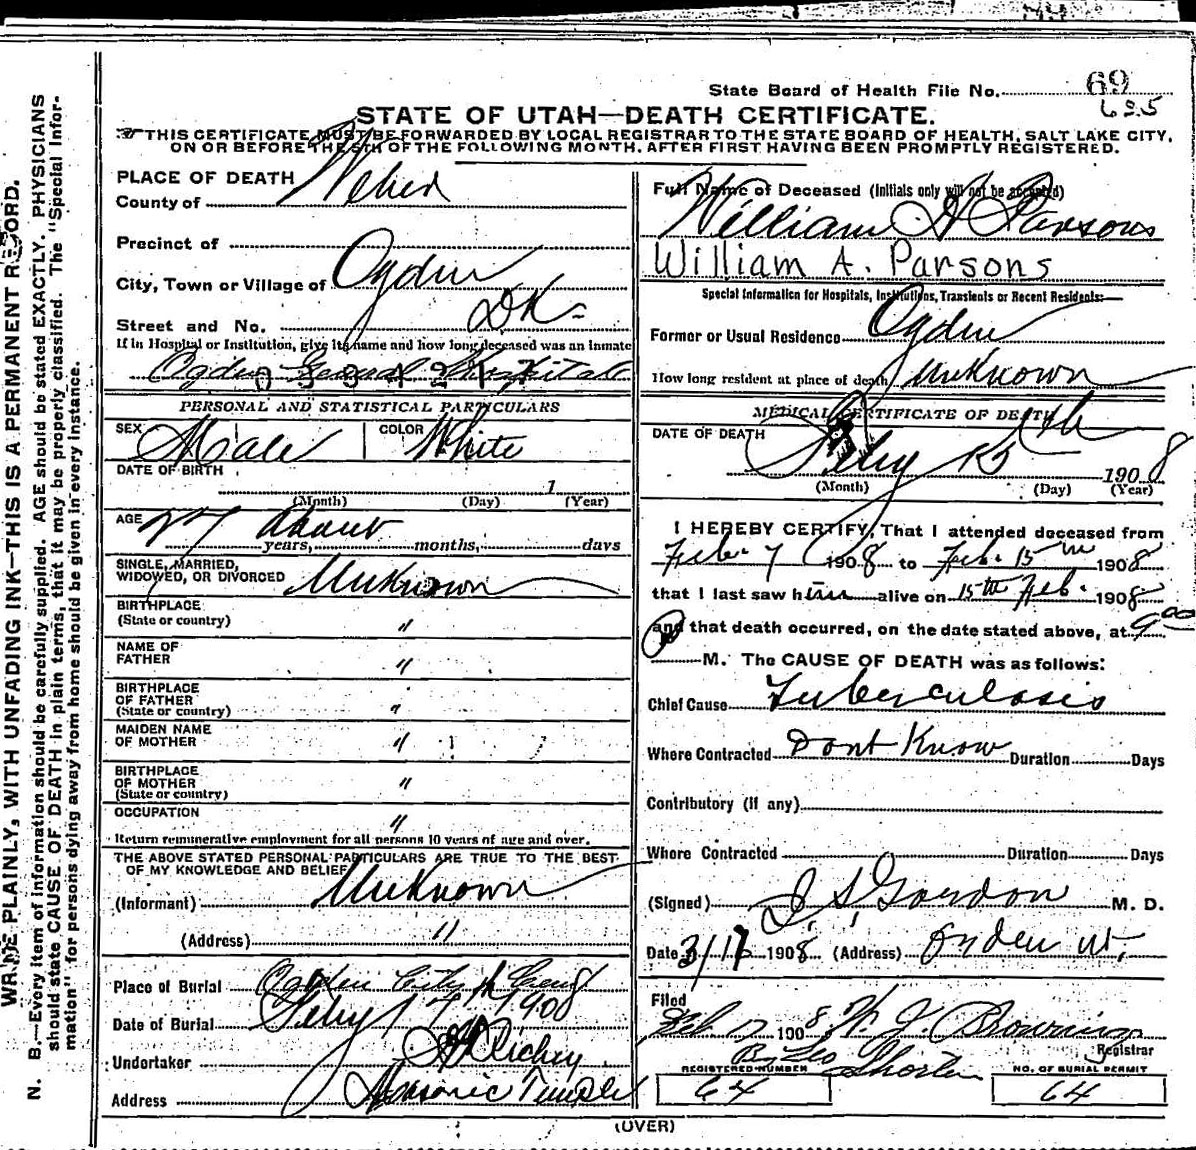 State Board of Health File No. 69
625
STATE OF UTAH—DEATH CERTIFICATE.
THIS CERTIFICATE MUST BE FORWARDED BY LOCAL REGISTRAR TO THE STATE BOARD OF HEALTH, SALT LAKE CITY,
ON OR BEFORE THE 5TH OF THE FOLLOWING MONTH, AFTER FIRST HAVING BEEN PROMPTLY REGISTERED.
WRITE PLAINLY, WITH UNFADING INK—THIS IS A PERMANENT RECORD.
N. B.—Every item of information should be carefully supplied. AGE should be stated EXACTLY. PHYSICIANS
should state CAUSE OF DEATH in plain terms, that it may be properly classified. The "Special Infor-
mation" for persons dying away from home should be given in every instance.
PLACE OF DEATH
County of Weber
Precinct of
City, Town or Village of Ogden
Street and No. DK
If in Hospital or Institution, give its name and how long deceased was an inmate
Ogden General Hospital
PERSONAL AND STATISTICAL PARTICULARS
SEX Male COLOR White
DATE OF BIRTH
1
(Month) (Day) (Year)
AGE 27 about
years, months, days
SINGLE, MARRIED,
WIDOWED, OR DIVORCED Unknown
BIRTHPLACE
(State or country) "
NAME OF
FATHER "
BIRTHPLACE
OF FATHER
(State or country) "
MAIDEN NAME
OF MOTHER "
BIRTHPLACE
OF MOTHER
(State or country) "
OCCUPATION "
Return remunerative employment for all persons 10 years of age and over.
THE ABOVE STATED PERSONAL PARTICULARS ARE TRUE TO THE BEST
OF MY KNOWLEDGE AND BELIEF
(Informant) Unknown
(Address) "
Place of Burial Ogden City
Date of Burial Feby 17 1908
Undertaker Richey
Address Masonic Temple
Full Name of Deceased (Initials only will not be accepted)
William A Parsons
William A. Parsons
Special Information for Hospitals, Institutions, Transients or Recent Residents:—
Former or Usual Residence Ogden
How long resident at place of death Unknown
MEDICAL CERTIFICATE OF DEATH
DATE OF DEATH
Feby 15th 1908
(Month) (Day) (Year)
I HEREBY CERTIFY, That I attended deceased from
Feb. 7 1908 to Feb. 15th 1908
that I last saw him alive on 15th Feb. 1908
and that death occurred, on the date stated above, at 9 00
M. The CAUSE OF DEATH was as follows:
Chief Cause Tuberculosis
Where Contracted Dont Know Duration Days
Contributory (if any)
Where Contracted Duration Days
(Signed) Gordon M. D.
Date 3/17 1908 (Address) Ogden Ut.
Filed
Feb 17 1908 W. J. Browning
Registrar
By Leo Shorten
REGISTERED NUMBER NO. OF BURIAL PERMIT
64 64
(OVER)